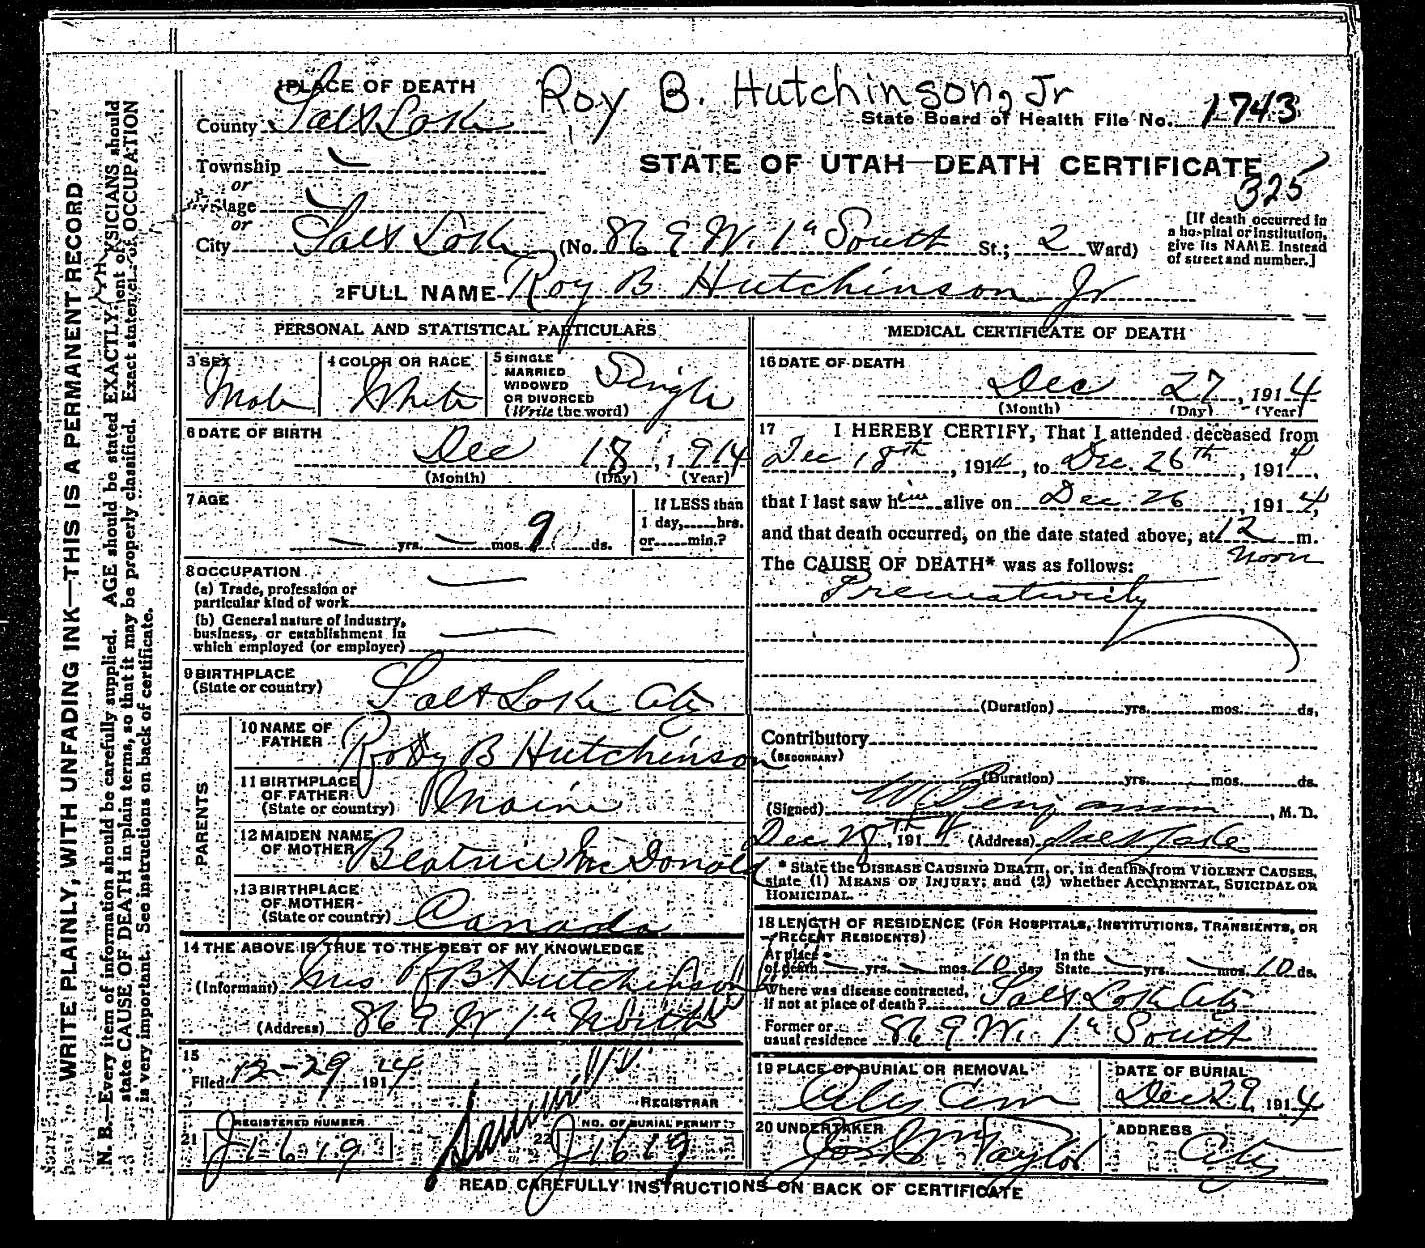 Roy B. Hutchinson, Jr
1 PLACE OF DEATH
County Salt Lake
State Board of Health File No. 1743
Township —
STATE OF UTAH—DEATH CERTIFICATE
or
Village —
325
or
City Salt Lake (No. 869 W. 1st South St.; 2 Ward)
[If death occurred in
a hospital or institution,
give its NAME instead
of street and number.]
2 FULL NAME Roy B Hutchinson Jr
PERSONAL AND STATISTICAL PARTICULARS
3 SEX Male
4 COLOR OR RACE White
5 SINGLE
MARRIED
WIDOWED
OR DIVORCED
(Write the word) Single
6 DATE OF BIRTH
Dec 18, 1914
(Month) (Day) (Year)
7 AGE
— yrs. — mos. 9 ds.
If LESS than
1 day, hrs.
or min.?
8 OCCUPATION
(a) Trade, profession or
particular kind of work —
(b) General nature of industry,
business, or establishment in
which employed (or employer) —
9 BIRTHPLACE
(State or country) Salt Lake City
PARENTS
10 NAME OF
FATHER Roy B Hutchinson
11 BIRTHPLACE
OF FATHER
(State or country) Maine
12 MAIDEN NAME
OF MOTHER Beatrice McDonald
13 BIRTHPLACE
OF MOTHER
(State or country) Canada
14 THE ABOVE IS TRUE TO THE BEST OF MY KNOWLEDGE
(Informant) Mrs R B Hutchinson
(Address) 869 W 1st North
15
Filed 12-29 1914
REGISTRAR
21 REGISTERED NUMBER
J1619
22 NO. OF BURIAL PERMIT
J1619
MEDICAL CERTIFICATE OF DEATH
16 DATE OF DEATH
Dec 27, 1914
(Month) (Day) (Year)
17 I HEREBY CERTIFY, That I attended deceased from
Dec 18th, 1914, to Dec. 26th, 1914,
that I last saw him alive on Dec 26 1914,
and that death occurred, on the date stated above, at 12 m.
Noon
The CAUSE OF DEATH* was as follows:
Prematurity
(Duration) yrs. mos. ds.
Contributory
(SECONDARY)
(Duration) yrs. mos. ds.
(Signed) Benjamin, M.D.
Dec 28th, 1914 (Address) Salt Lake
* State the DISEASE CAUSING DEATH, or, in deaths from VIOLENT CAUSES,
state (1) MEANS OF INJURY; and (2) whether ACCIDENTAL, SUICIDAL OR
HOMICIDAL.
18 LENGTH OF RESIDENCE (FOR HOSPITALS, INSTITUTIONS, TRANSIENTS, OR
RECENT RESIDENTS)
At place
of death — yrs. — mos. 10 ds. In the
State — yrs. — mos. 10 ds.
Where was disease contracted,
if not at place of death? Salt Lake City
Former or
usual residence 869 W. 1st South
19 PLACE OF BURIAL OR REMOVAL
City Cem
DATE OF BURIAL
Dec 29 1914
20 UNDERTAKER
Taylor
ADDRESS
City
READ CAREFULLY INSTRUCTIONS ON BACK OF CERTIFICATE
WRITE PLAINLY, WITH UNFADING INK—THIS IS A PERMANENT RECORD
N. B.—Every item of information should be carefully supplied. AGE should be stated EXACTLY. PHYSICIANS should
state CAUSE OF DEATH in plain terms, so that it may be properly classified. Exact statement of OCCUPATION
is very important. See instructions on back of certificate.